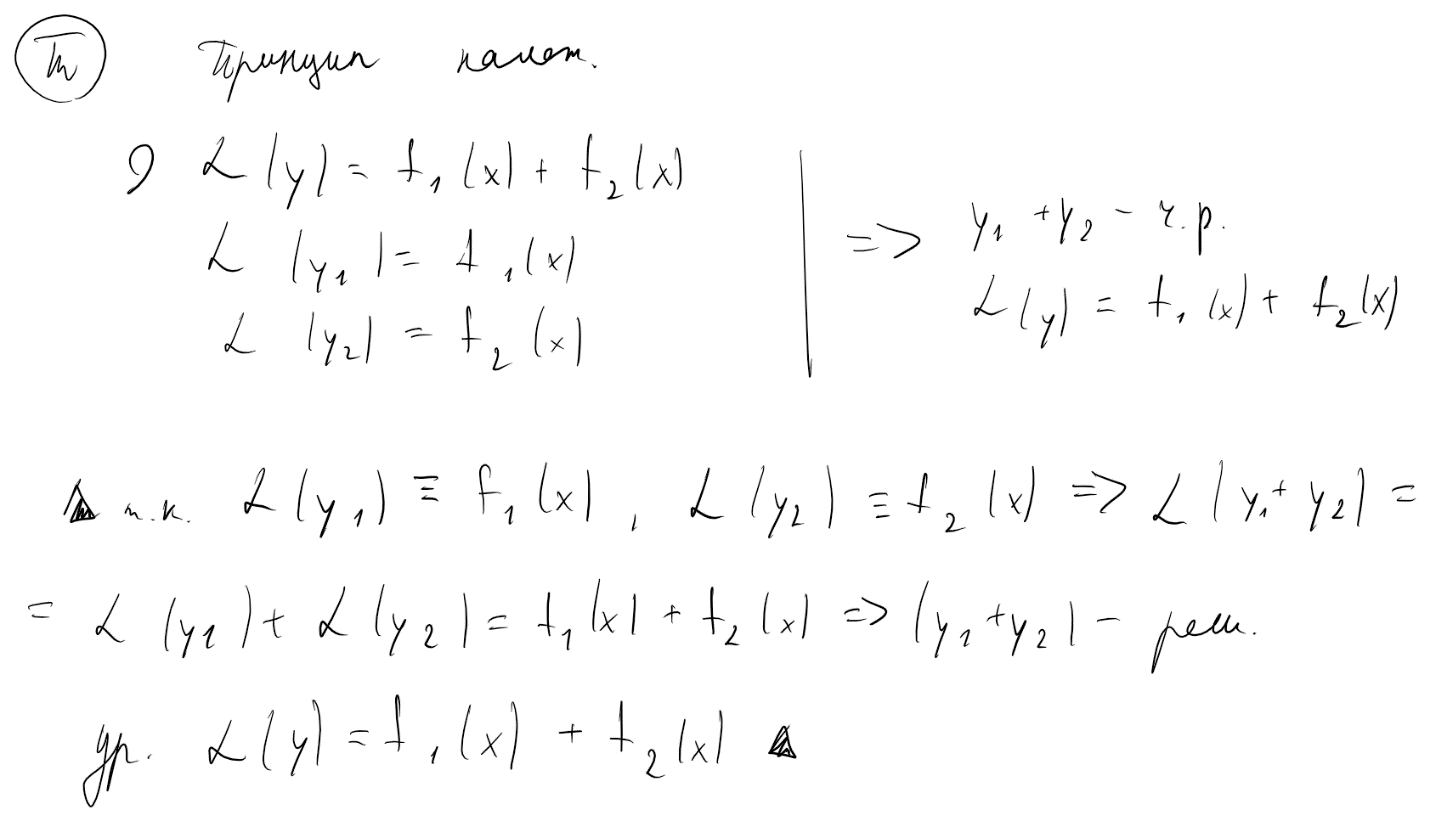 Th Принцип налож.
∂ L(y) = f₁(x) + f₂(x)
L(y₁) = f₁(x)
L(y₂) = f₂(x)
=> y₁ + y₂ - ч.р.
L(y) = f₁(x) + f₂(x)
▲ т.к. L(y₁) ≡ f₁(x), L(y₂) ≡ f₂(x) => L(y₁ + y₂) =
= L(y₁) + L(y₂) = f₁(x) + f₂(x) => (y₁ + y₂) - реш.
ур. L(y) = f₁(x) + f₂(x) ▲